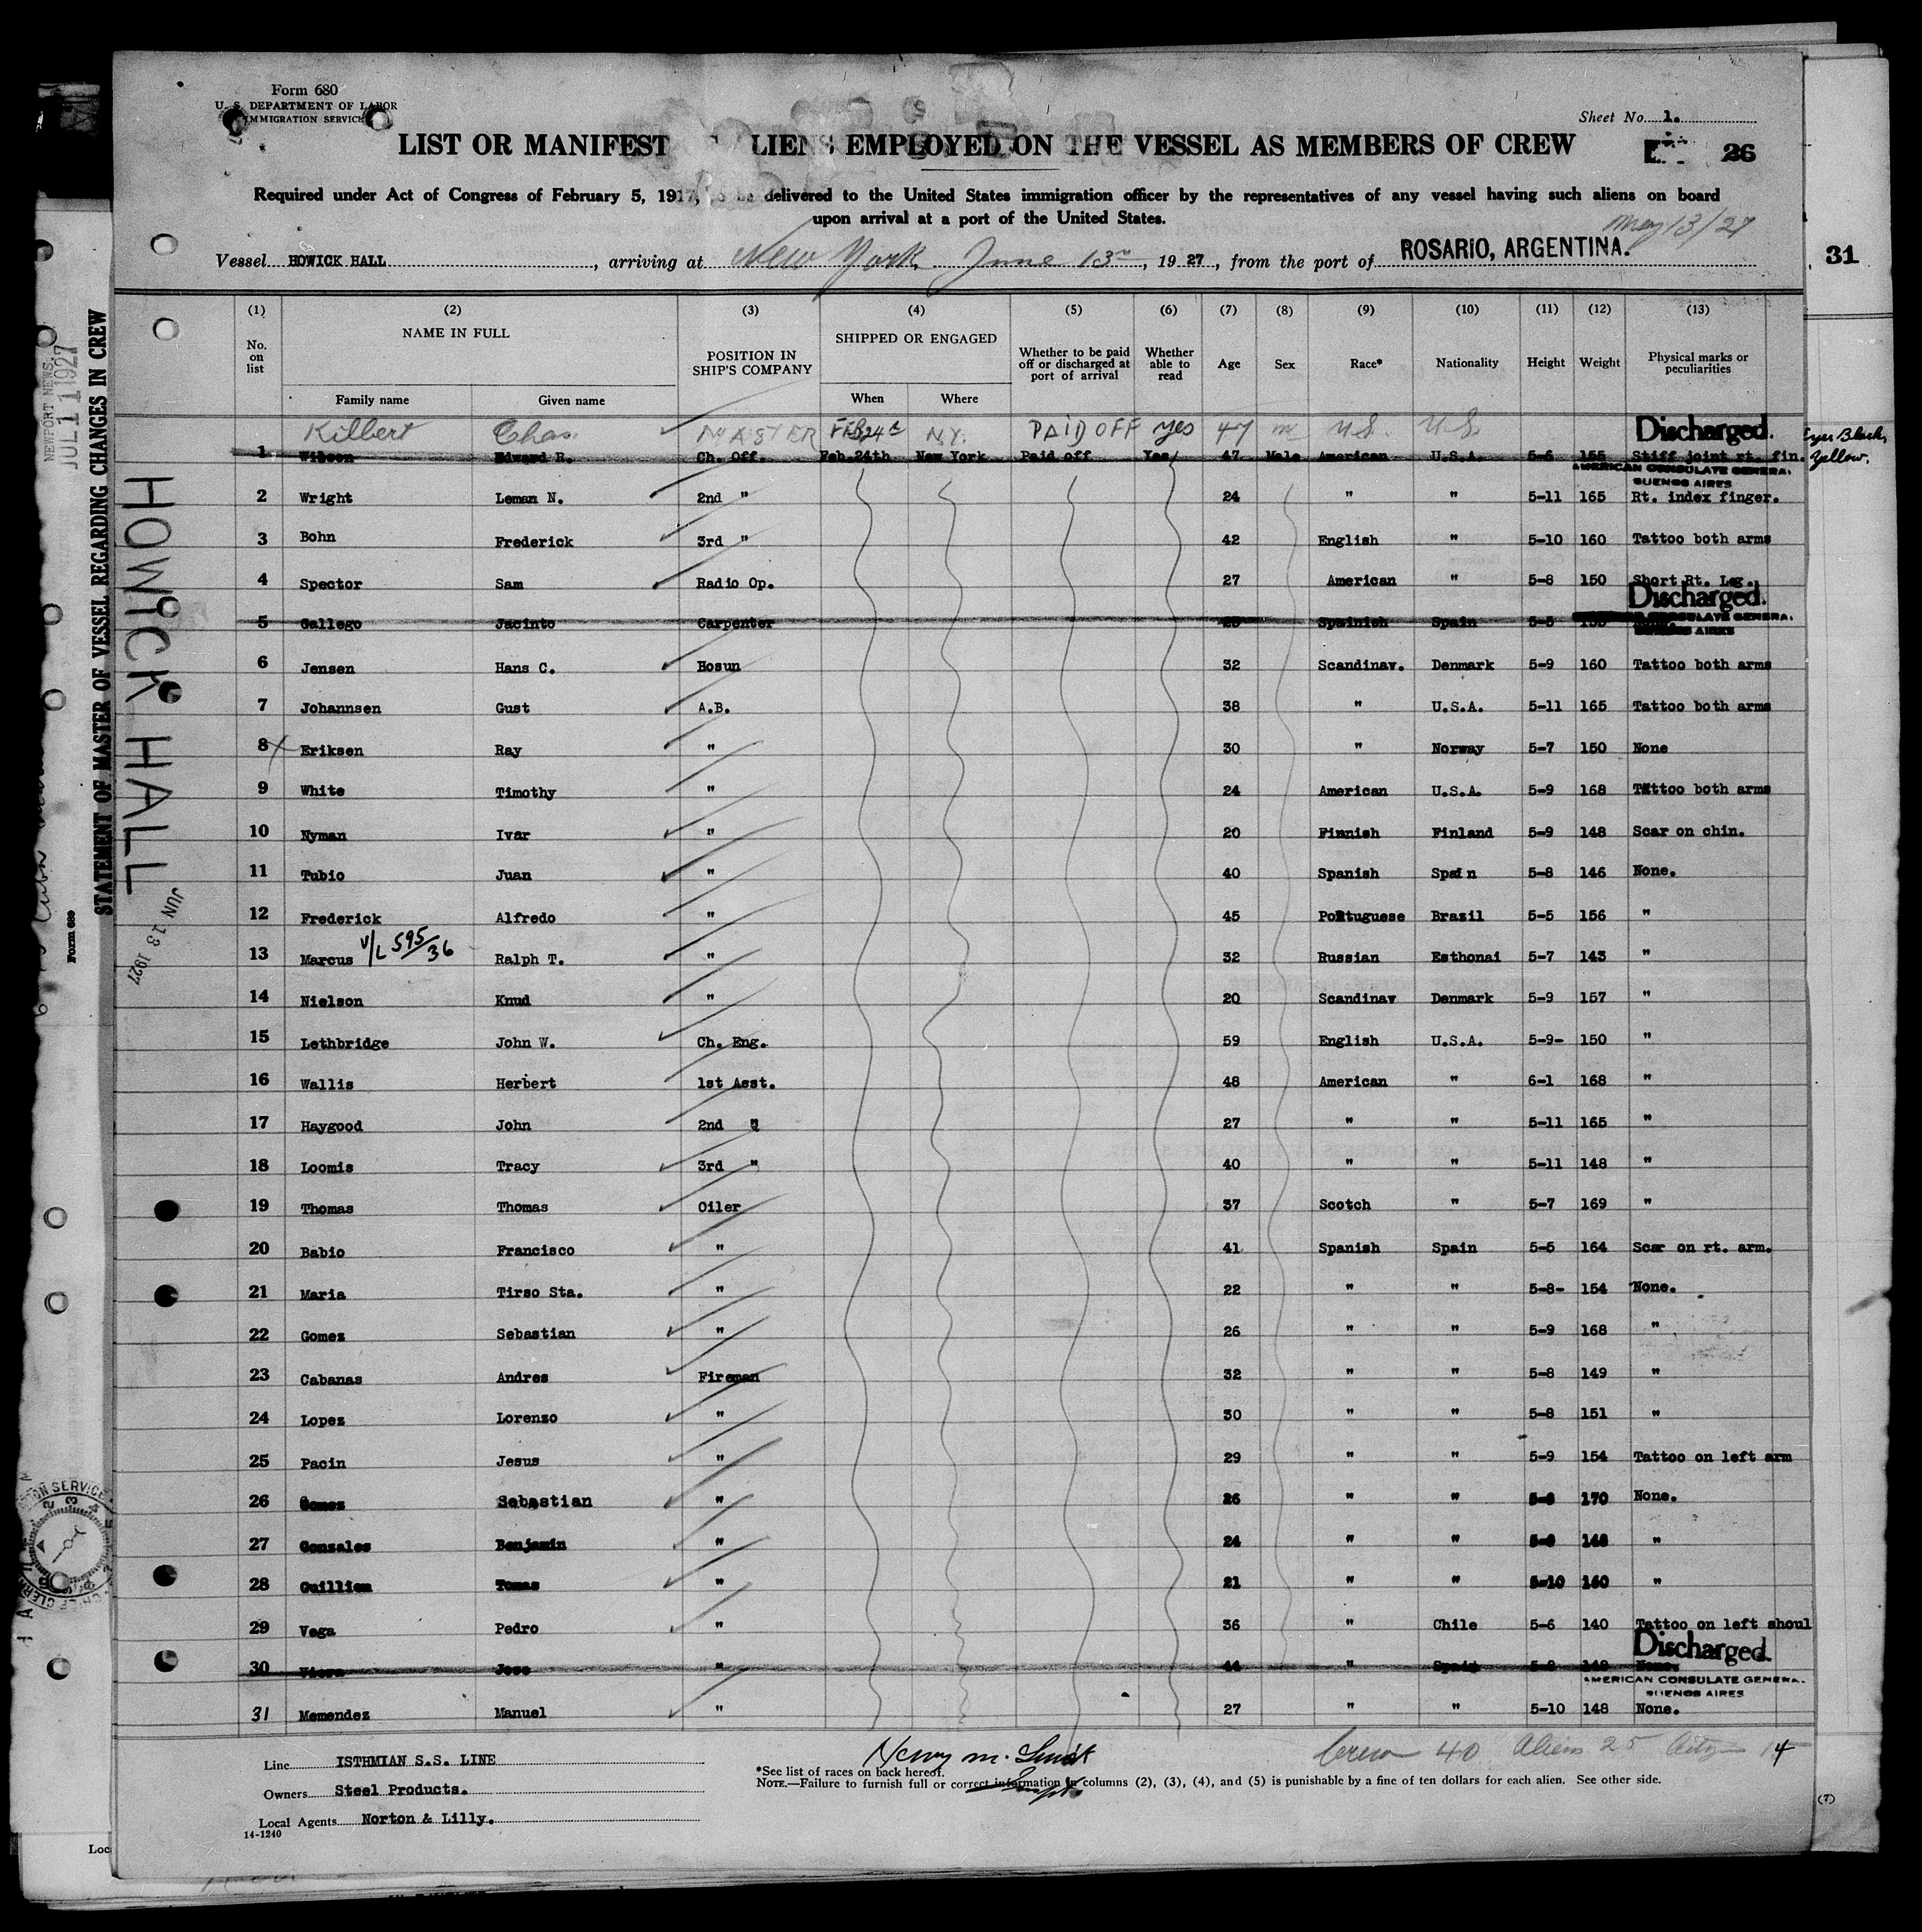 Form 680
U. S. DEPARTMENT OF LABOR
IMMIGRATION SERVICE
Sheet No. 1.
LIST OR MANIFEST ALIENS EMPLOYED ON THE VESSEL AS MEMBERS OF CREW
26
Required under Act of Congress of February 5, 1917, to be delivered to the United States immigration officer by the representatives of any vessel having such aliens on board
upon arrival at a port of the United States.
May 13/27
Vessel HOWICK HALL, arriving at New York, June 13th, 1927, from the port of ROSARIO, ARGENTINA.
31
(1) (2) (3) (4) (5) (6) (7) (8) (9) (10) (11) (12) (13)
No. on list NAME IN FULL POSITION IN SHIP'S COMPANY SHIPPED OR ENGAGED Whether to be paid off or discharged at port of arrival Whether able to read Age Sex Race* Nationality Height Weight Physical marks or peculiarities
Family name Given name When Where
Kilbert Chas. MASTER FEB 24th N.Y. PAID OFF yes 47 m U.S. U.S. Discharged.
1 Wilson Edward R. Ch. Off. Feb. 24th New York Paid off Yes 47 Male American U.S.A. 5-6 155 Stiff joint rt. fin. Eyes Black, Yellow.
AMERICAN CONSULATE GENERA.
BUENOS AIRES
2 Wright Leman N. 2nd " 24 " " 5-11 165 Rt. index finger.
3 Bohn Frederick 3rd " 42 English " 5-10 160 Tattoo both arms
4 Spector Sam Radio Op. 27 American " 5-8 150 Short Rt. Leg.
Discharged.
5 Gallego Jacinto Carpenter Spainish Spain 5-5 CONSULATE GENERA.
AIRES
6 Jensen Hans C. Bosun 32 Scandinav. Denmark 5-9 160 Tattoo both arms
7 Johannsen Gust A.B. 38 " U.S.A. 5-11 165 Tattoo both arms
8 Eriksen Ray " 30 " Norway 5-7 150 None
9 White Timothy " 24 American U.S.A. 5-9 168 Tattoo both arms
10 Nyman Ivar " 20 Finnish Finland 5-9 148 Scar on chin.
11 Tubio Juan " 40 Spanish Spain 5-8 146 None.
12 Frederick Alfredo " 45 Portuguese Brazil 5-5 156 "
13 Marcus V/L 595/36 Ralph T. " 32 Russian Esthonai 5-7 143 "
14 Nielson Knud " 20 Scandinav Denmark 5-9 157 "
15 Lethbridge John W. Ch. Eng. 59 English U.S.A. 5-9- 150 "
16 Wallis Herbert 1st Asst. 48 American " 6-1 168 "
17 Haygood John 2nd " 27 " " 5-11 165 "
18 Loomis Tracy 3rd " 40 " " 5-11 148 "
19 Thomas Thomas Oiler 37 Scotch " 5-7 169 "
20 Babio Francisco " 41 Spanish Spain 5-5 164 Scar on rt. arm.
21 Maria Tirso Sta. " 22 " " 5-8- 154 None.
22 Gomez Sebastian " 26 " " 5-9 168 "
23 Cabanas Andres Fireman 32 " " 5-8 149 "
24 Lopez Lorenzo " 30 " " 5-8 151 "
25 Pacin Jesus " 29 " " 5-9 154 Tattoo on left arm
26 Gomez Sebastian " 26 " " 170 None.
27 Gonzales Benjamin " 24 " " 148 "
28 Guillien Tomas " 21 " " 5-10 160 "
29 Vega Pedro " 36 " Chile 5-6 140 Tattoo on left shoul
Discharged.
30 Viera Jose " 44 " Spain None.
AMERICAN CONSULATE GENERA.
BUENOS AIRES
31 Memendez Manuel " 27 " " 5-10 148 None.
Line ISTHMIAN S.S. LINE
Owners Steel Products.
Local Agents Norton & Lilly.
14-1240
Henry M.
*See list of races on back hereof.
NOTE.—Failure to furnish full or correct information in columns (2), (3), (4), and (5) is punishable by a fine of ten dollars for each alien. See other side.
Crew 40 Aliens 25 14
(7)
STATEMENT OF MASTER OF VESSEL REGARDING CHANGES IN CREW
HOWICK HALL
JUN 13 1927
NEWPORT NEWS
JUL 11 1927
Form 689